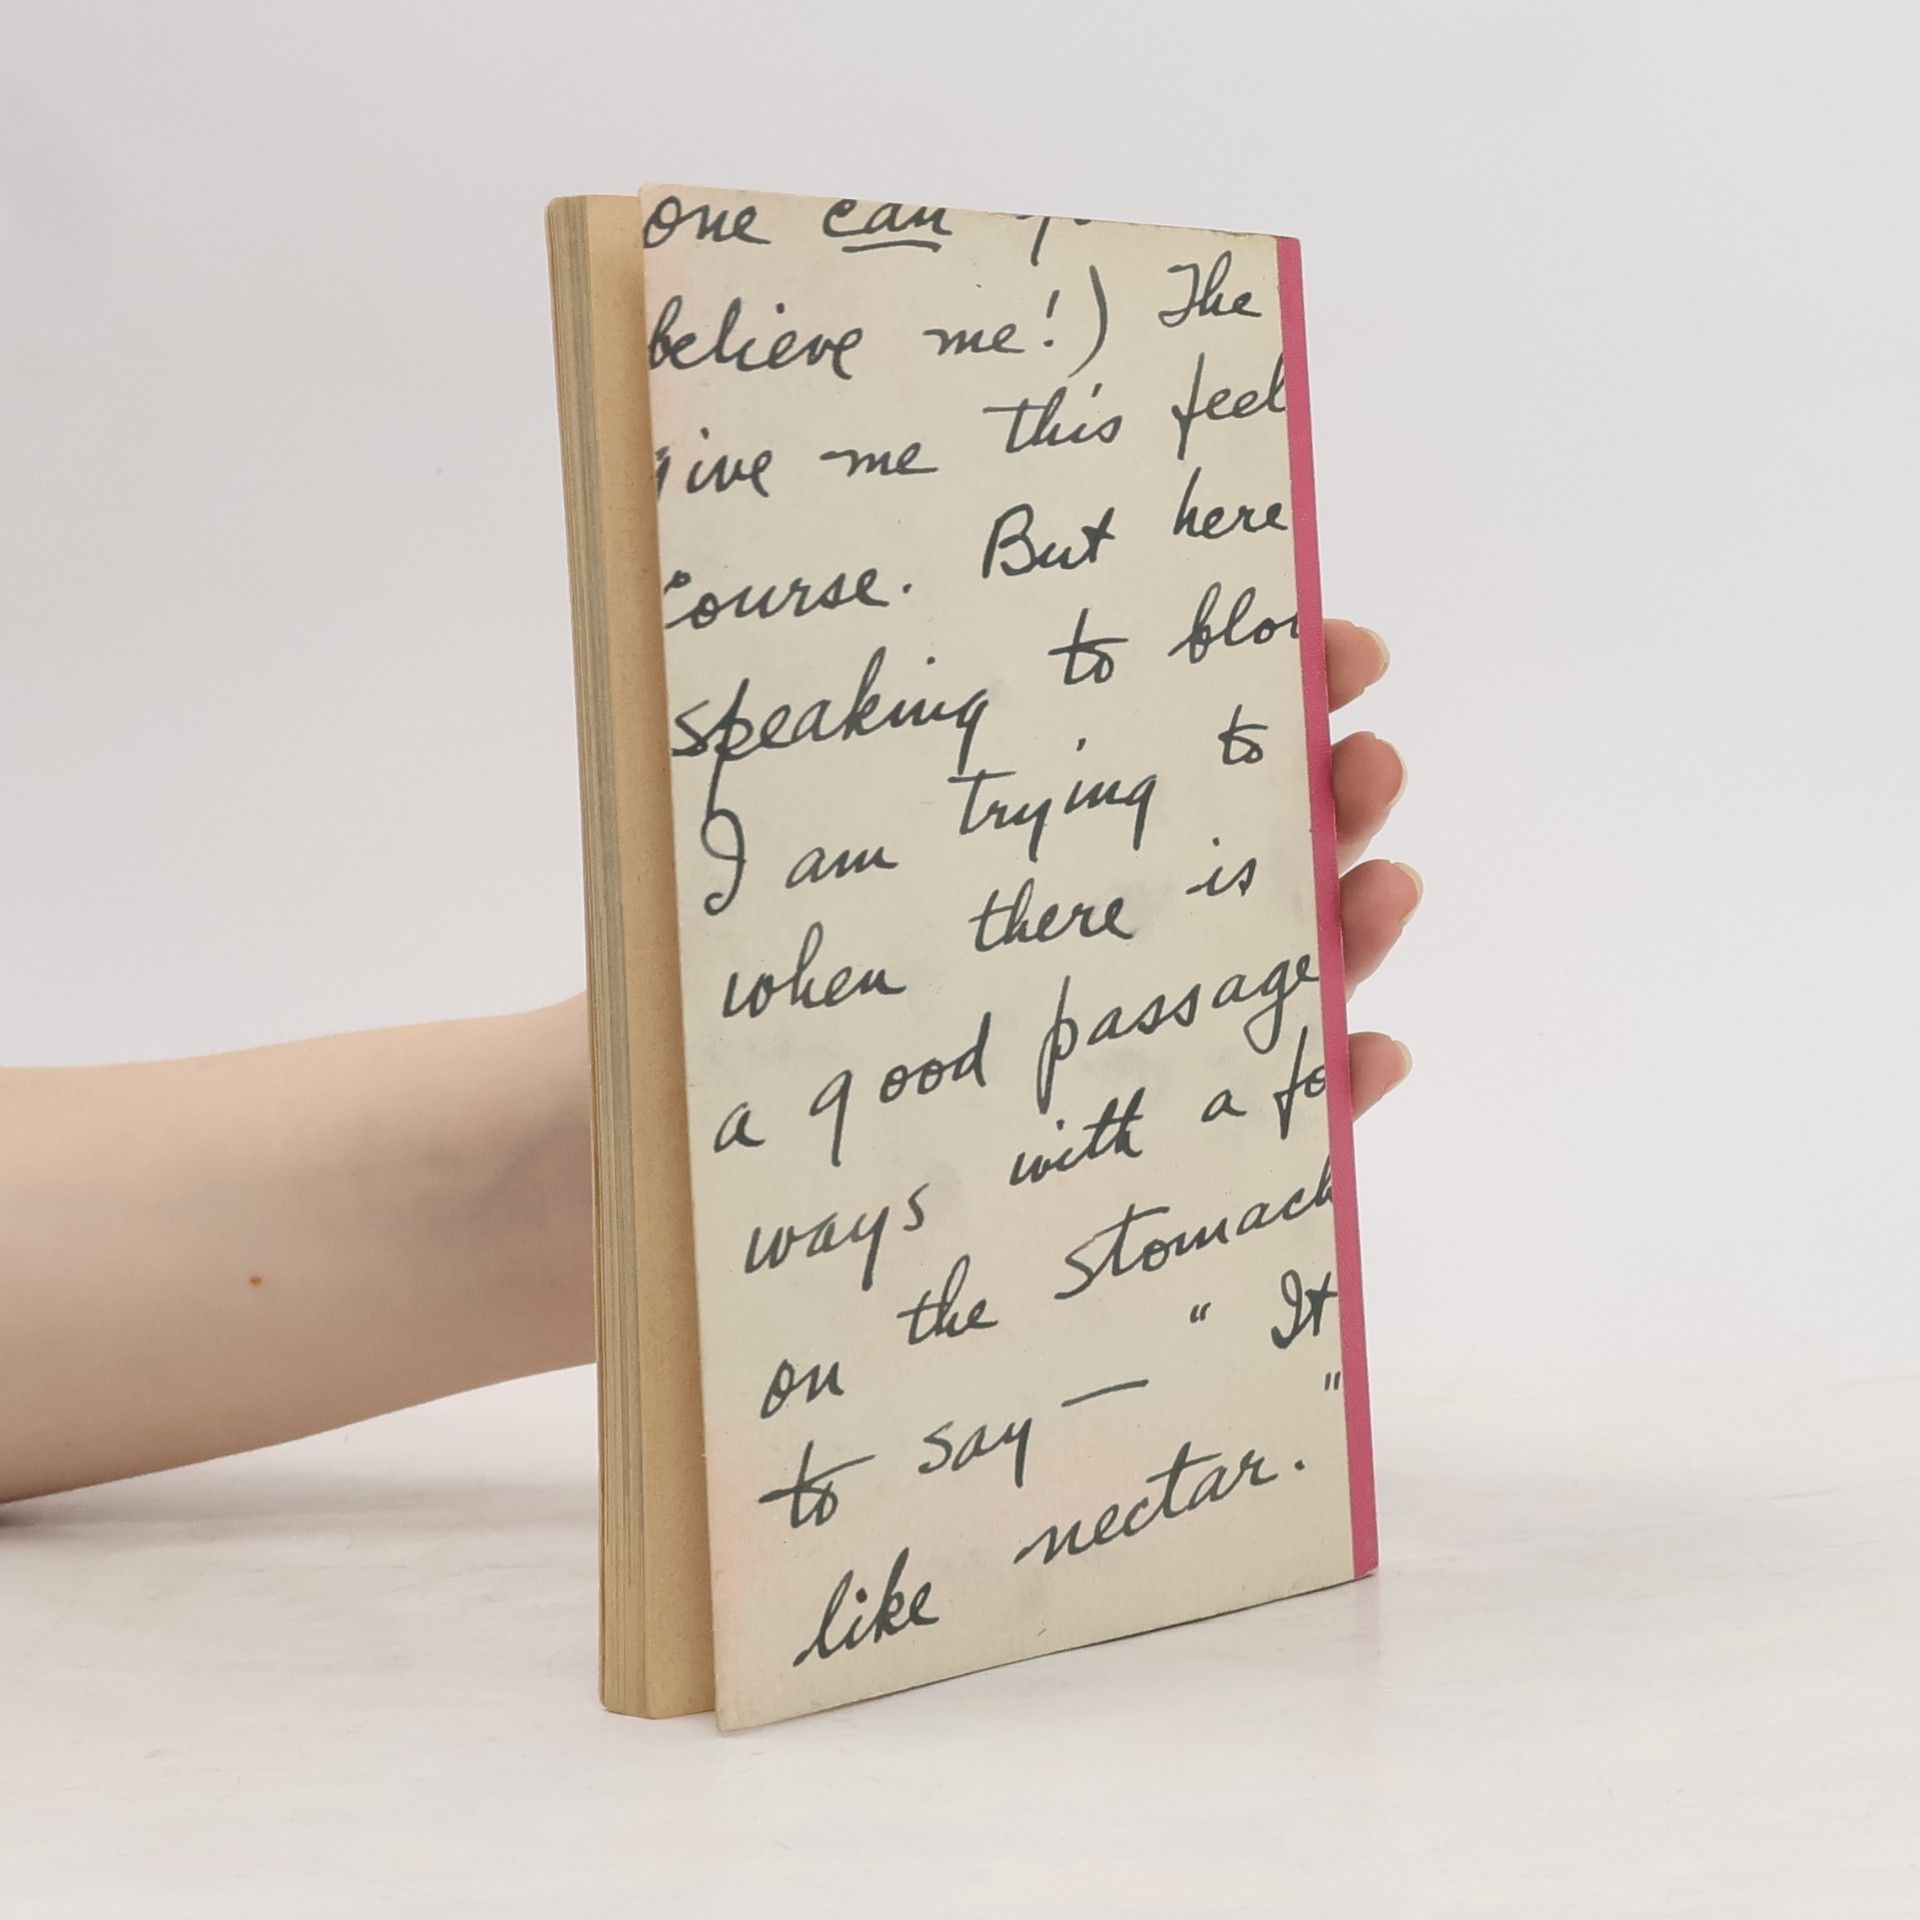 one can
believe me!) The
give me this feel
course. But here
speaking to blo
I am trying to
when there is
a good passage
ways with a fo
on the stomach
to say — " It
"
like nectar.